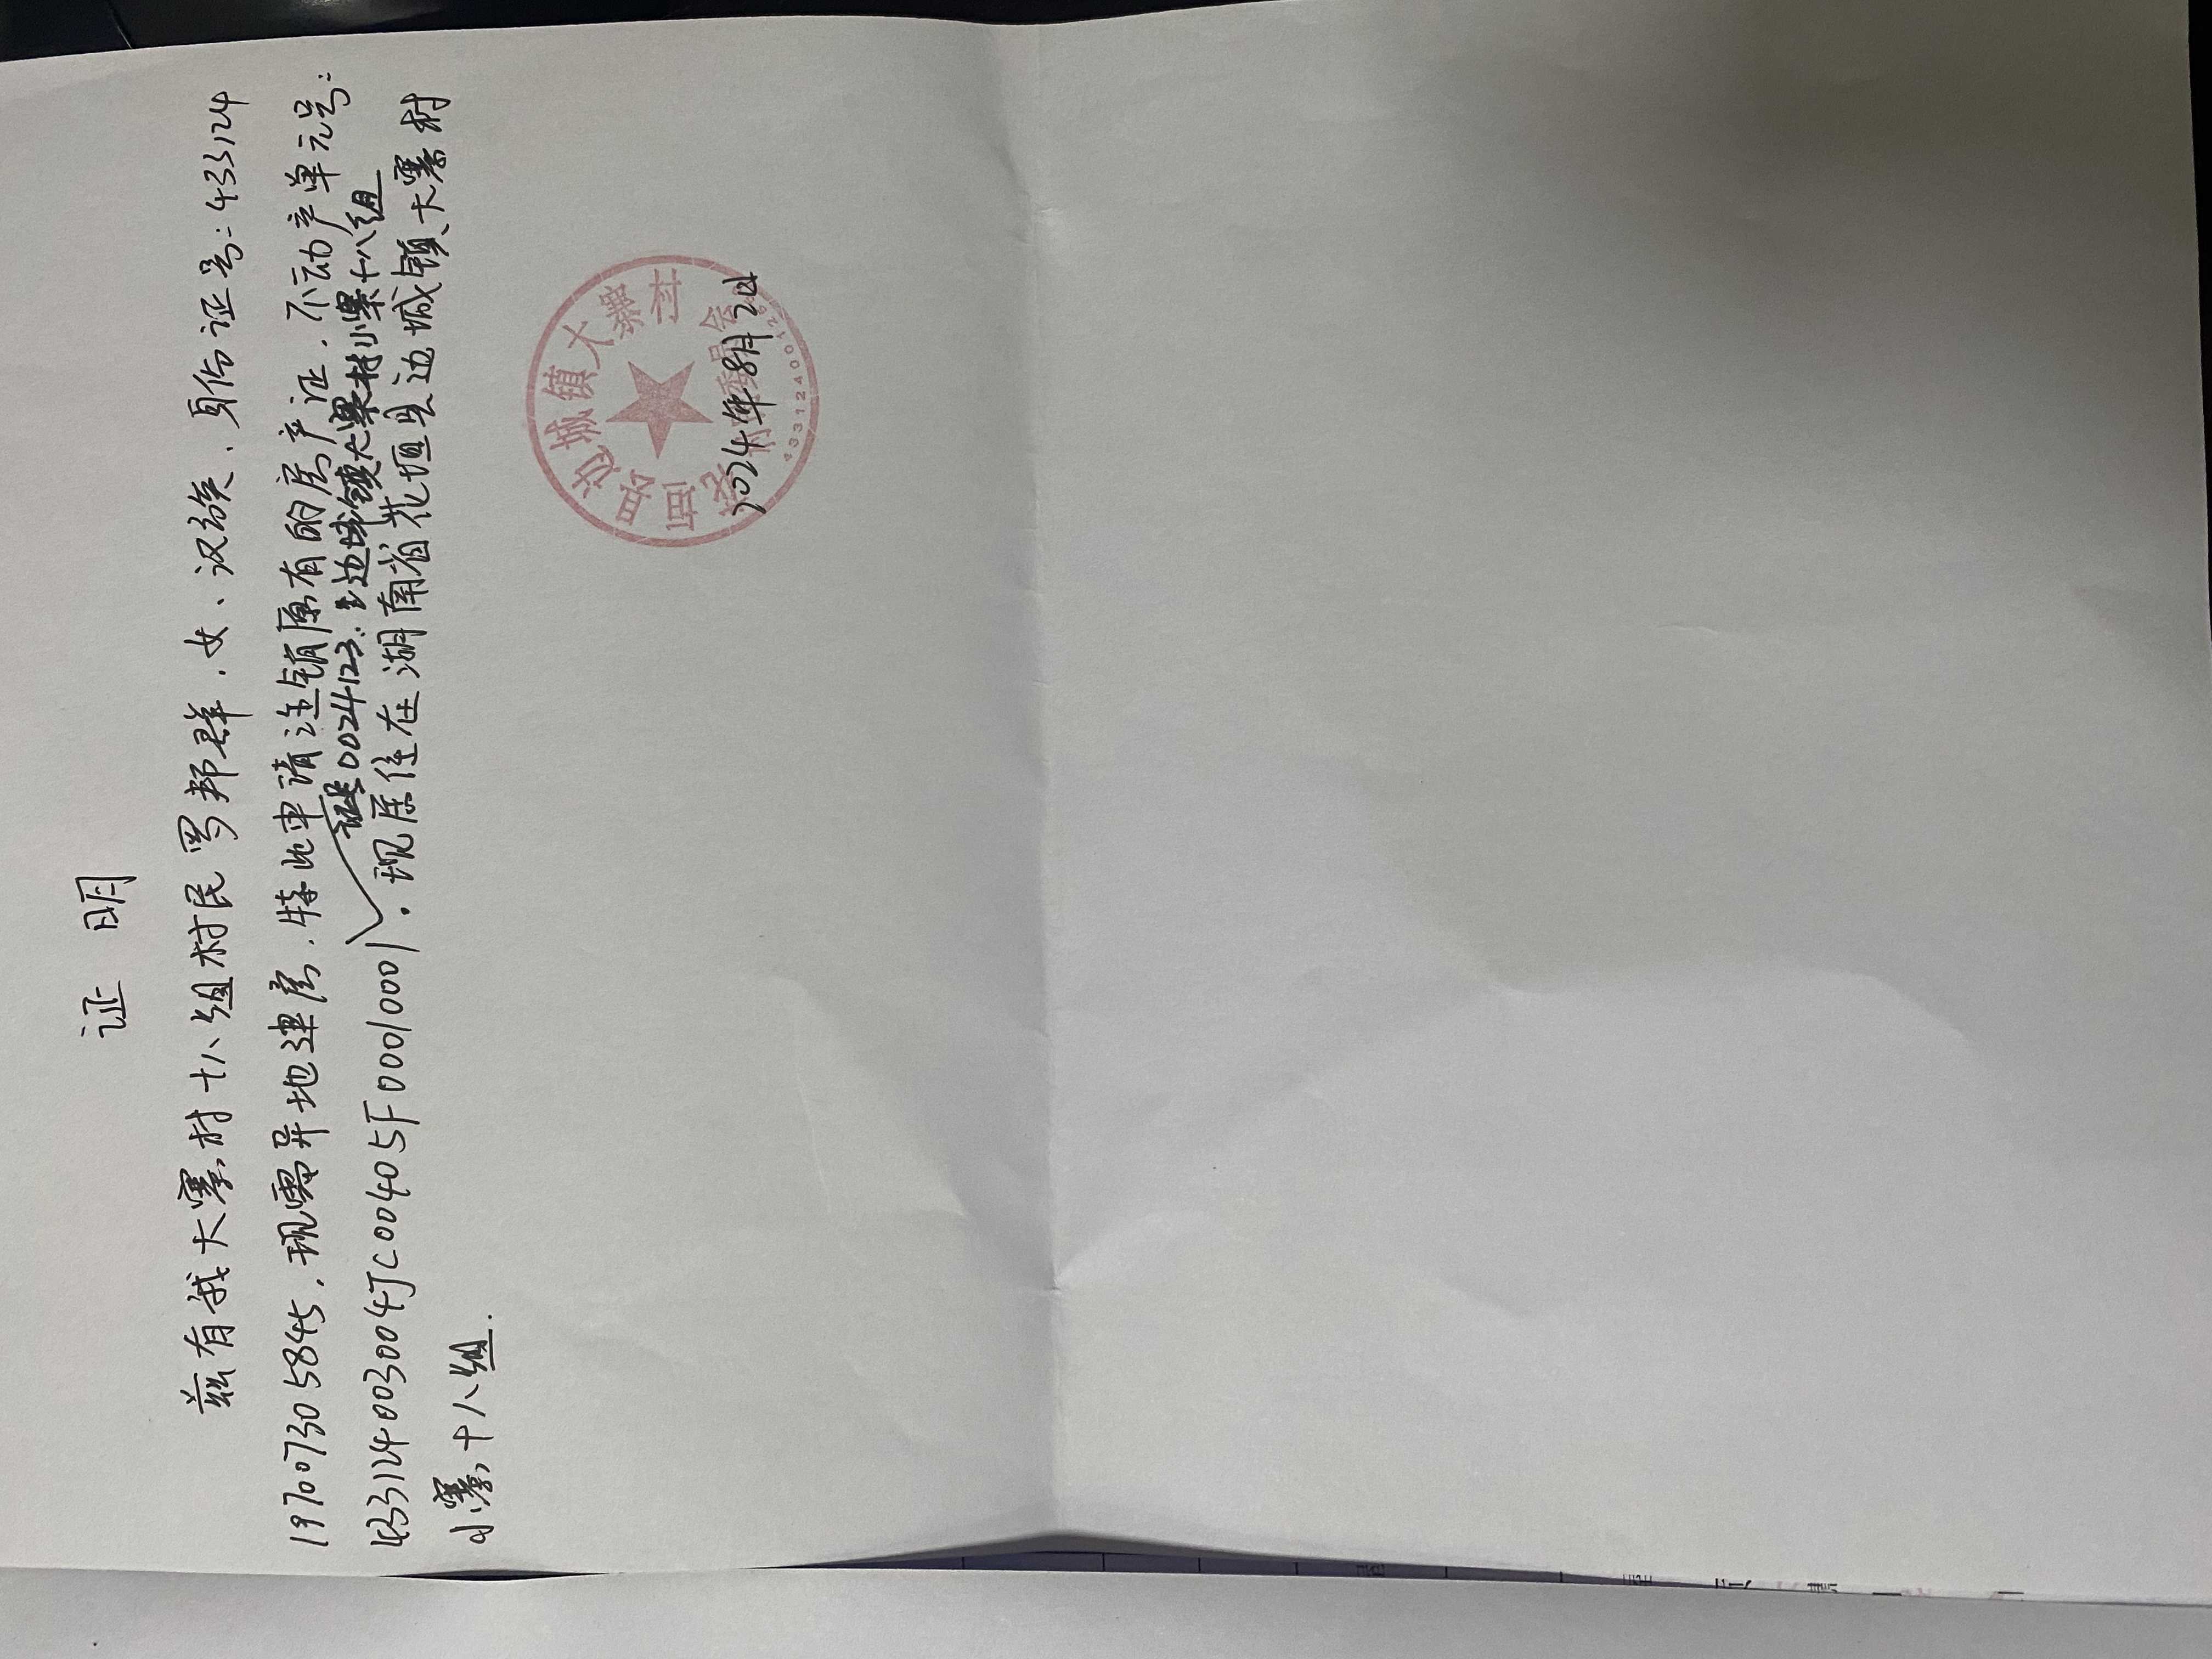 证 明
兹有我大寨村十八组村民罗邦群，女、汉族、身份证号：433124
197007305845，现需异地建房，特此申请注销原有的房产证，不动产单元号：
证号0024123 边城镇大寨村小寨十八组
433124003004JC00405F00010001，现居住在湖南省花垣县边城镇大寨村
小寨十八组.
花垣县边城镇大寨村
村民委员会
2024年8月2日